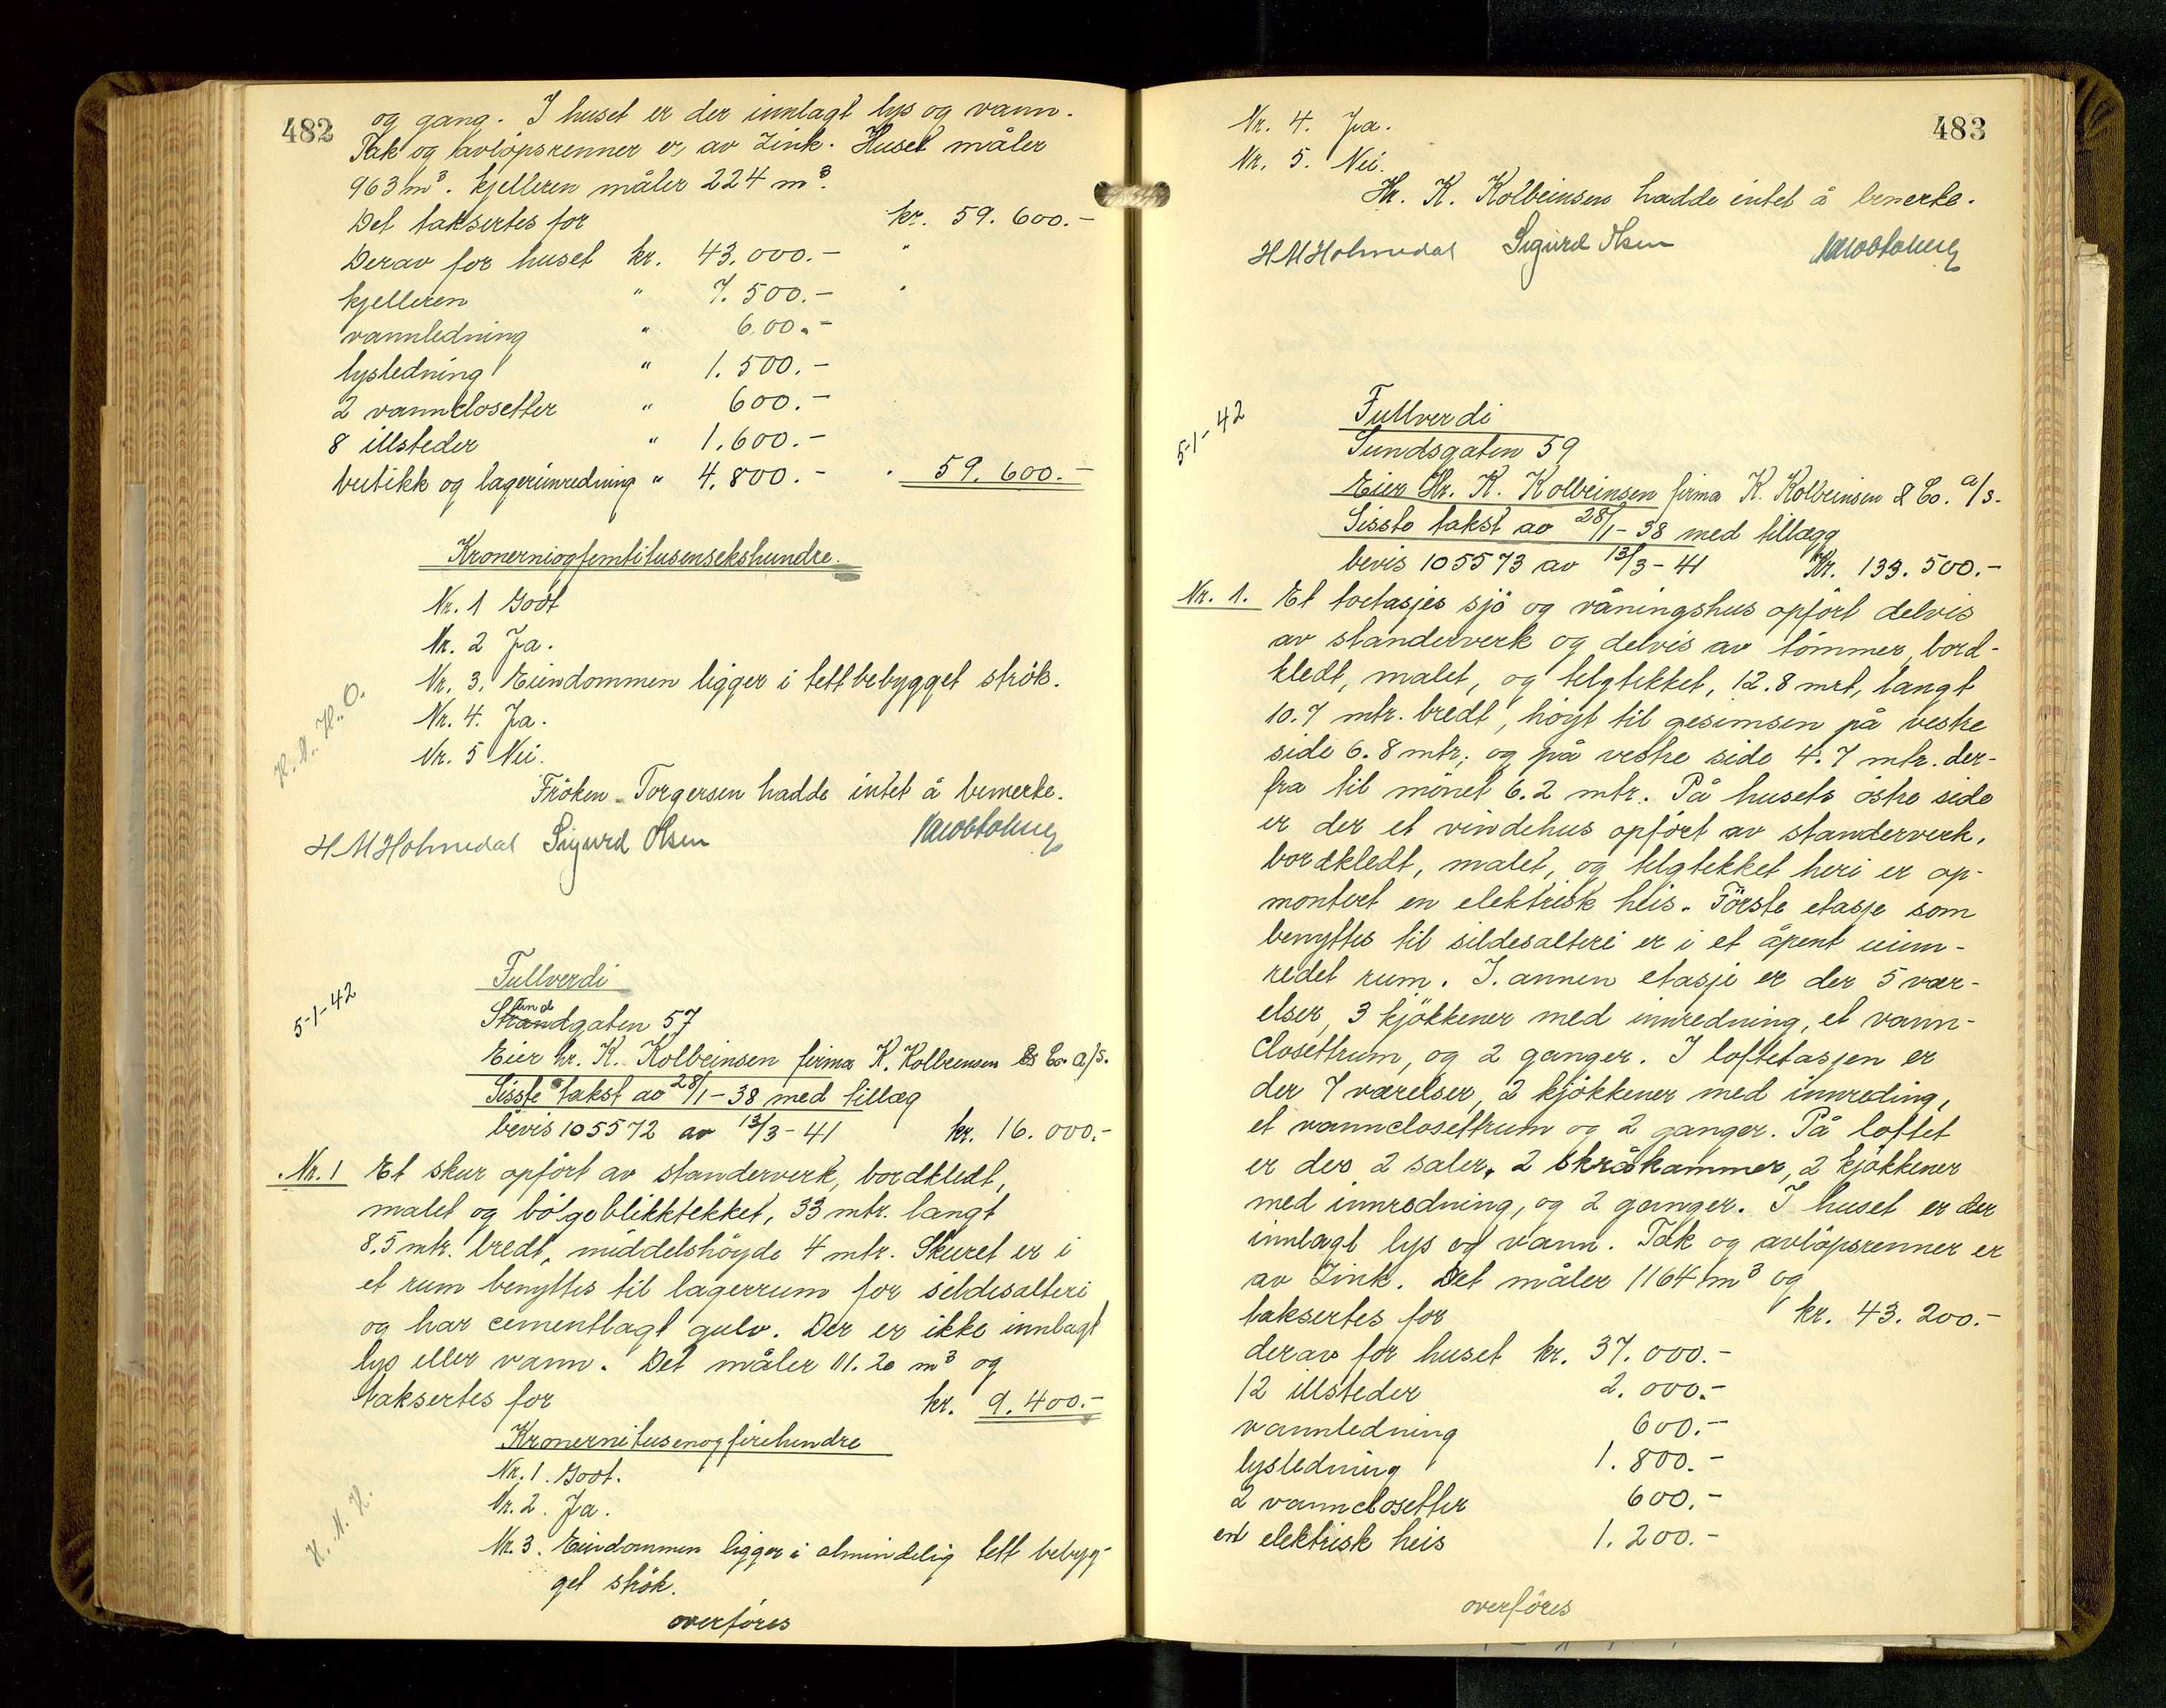 482
og gang. I huset er der innlagt lys og vann.
Tak og avløpsrenner er av Zink. Huset måler
963 m³. kjelleren måler 224 m³.
Det taksertes for kr. 59.600.-
Derav for huset kr. 43.000.- "
kjelleren " 7.500.- "
vannledning " 600.-
lysledning " 1.500.-
2 vannclosetter " 600.-
8 illsteder " 1.600.-
butikk og lagerinnredning " 4.800.- " 59.600.-
Kronerniogfemtitusensekshundre.
Nr. 1 Godt
Nr. 2 Ja.
Nr. 3. Eiendommen ligger i tett bebygget strök.
Nr. 4. Ja.
Nr. 5 Nei.
H. M. H. O.
Fröken Torgersen hadde intet å bemerke.
H M Holmedal Sigurd Olsen
5-1-42
Fullverdi
Strandgaten 57
Sund
Eier hr. K. Kolbeinsen firma K. Kolbeinsen & Co. A/S.
Sisste takst av 28/1-38 med tillæg
bevis 105572 av 13/3-41 kr. 16.000.-
Nr. 1 Et skur opfört av standerverk, bordkledt,
malet og bölgeblikktekket, 33 mtr. langt
8.5 mtr. bredt, middelshöyde 4 mtr. Skuret er i
et rum benyttes til lagerrum for sildesalteri
og har cementlagt gulv. Der er ikke innlagt
lys eller vann. Det måler 11.20 m³ og
taksertes for kr. 9.400.-
Kronernitusenogfirehundre
Nr. 1. Godt.
Nr. 2. Ja.
Nr. 3. Eiendommen ligger i almindelig tett bebyg-
get strök.
H. M. H.
overföres
483
Nr. 4. Ja.
Nr. 5. Nei.
Hr. K. Kolbeinsen hadde intet å bemerke.
H M Holmedal Sigurd Olsen
5-1-42
Fullverdi
Sundsgaten 59
Eier Hr. K. Kolbeinsen firma K. Kolbeinsen & Co. A/S.
Sisste takst av 28/1-38 med tillægg
bevis 105573 av 13/3-41 Kr. 133.500.-
Nr. 1. Et toetasjes sjö og våningshus opfört delvis
av standerverk og delvis av tömmer, bord-
kledt, malet, og telgtekket, 12.8 mrt, langt
10.7 mtr. bredt, höyt til gesimsen på vestre
side 6.8 mtr, og på vestre side 4.7 mtr. der-
fra til mönet 6.2 mtr. På husets östre side
er der et vindehus opfört av standerverk,
bordkledt, malet, og telgtekket heri er op-
montert en elektrisk heis. Förste etasje som
benyttes til sildesalteri er i et åpent uinn-
redet rum. I. annen etasje er der 5 vær-
elser, 3 kjökkener med innredning, et vann-
closettrum, og 2 ganger. I loftetasjen er
der 7 værelser, 2 kjökkener med innreding,
et vannclosettrum og 2 ganger. På loftet
er der 2 saler, 2 skråkammer, 2 kjökkener
med innredning, og 2 ganger. I huset er der
innlagt lys og vann. Tak og avlöpsrenner er
av Zink. Det måler 1164 m³ og
taksertes for kr. 43.200.-
derav for huset kr. 37.000.-
12 illsteder 2.000.-
vannledning 600.-
lysledning 1.800.-
2 vannclosetter 600.-
en elektrisk heis 1.200.-
overföres